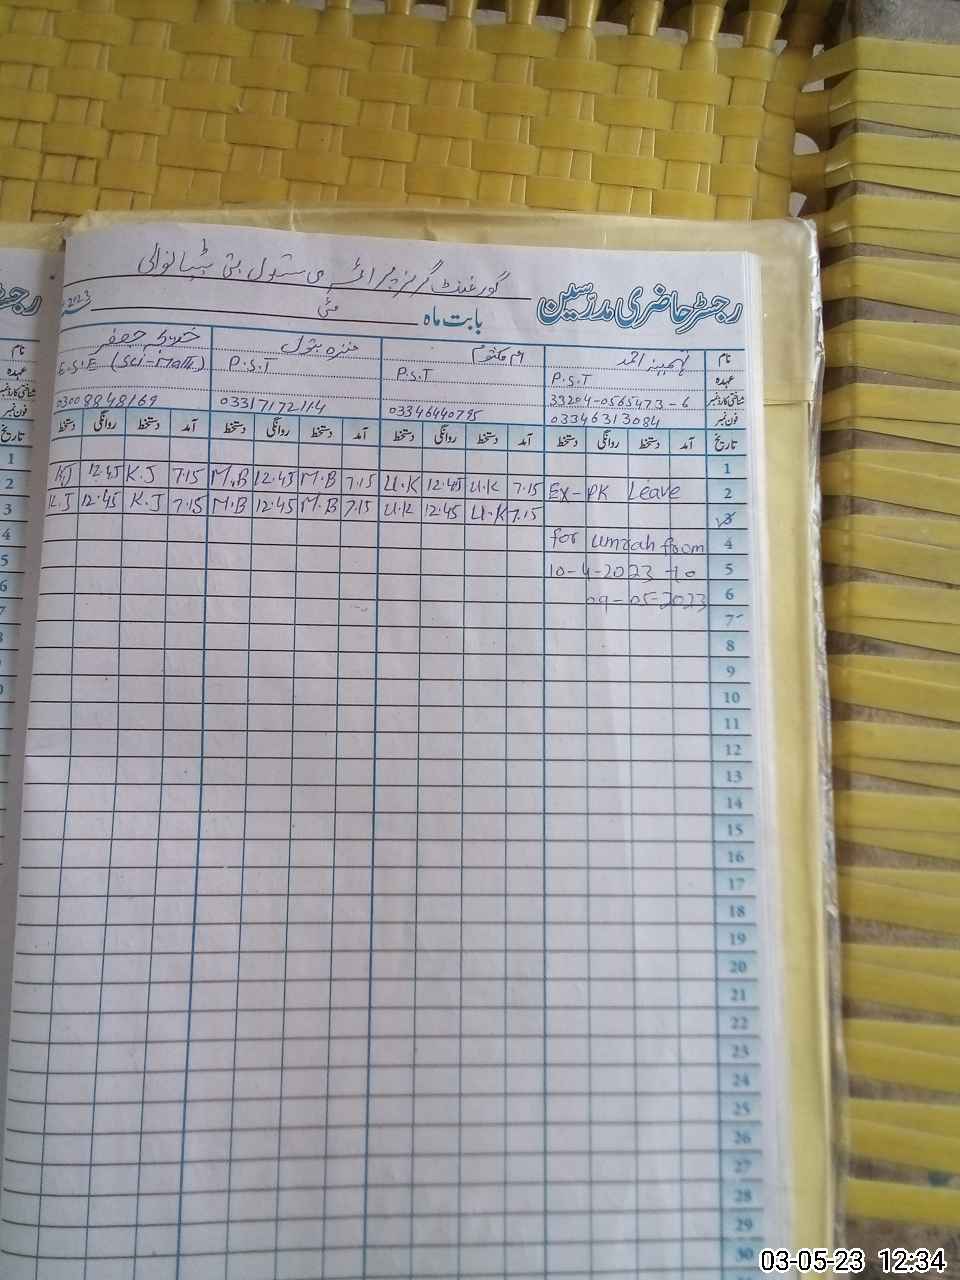 گورنمنٹ گرلز پرائمری سکول بٹیانوالی
رجسٹر حاضری مدرسین
بابت ماہ مئی 2023
نام
خدیجہ جعفر منزہ بتول ام کلثوم تہمینہ احمد
عہدہ
E.S.E (Sci-Math) P.S.T P.S.T P.S.T
شناختی کارڈ نمبر
33204-0565473-6
فون نمبر
03008848169 03317172114 03346440795 03346313084
تاریخ آمد دستخط روانگی دستخط آمد دستخط روانگی دستخط آمد دستخط روانگی دستخط آمد دستخط روانگی دستخط
1
K.J 12.45 K.J 7.15 M.B 12.45 M.B 7.15 U.K 12.45 U.K 7.15 Ex-PK Leave 2
K.J 12.45 K.J 7.15 M.B 12.45 M.B 7.15 U.K 12.45 U.K 7.15 3
for Umrah from 4
10-4-2023 to 5
09-05-2023 6
7
8
9
10
11
12
13
14
15
16
17
18
19
20
21
22
23
24
25
26
27
28
29
30
رجسٹر
نام
عہدہ
شناختی کارڈ نمبر
فون نمبر
تاریخ
1
2
3
4
5
6
03-05-23 12:34